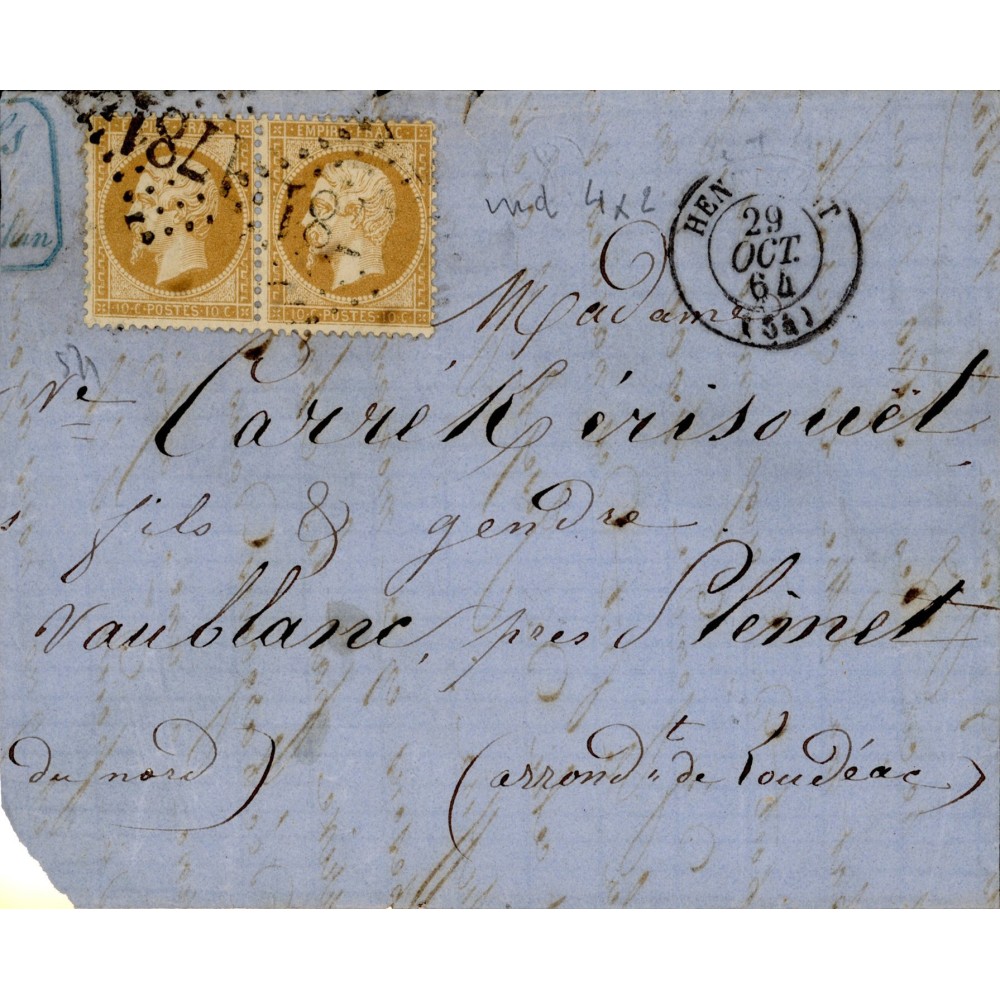 EMPIRE FRANC
10·C·POSTES·10·C·
10·C·POSTES·10·C·
HEN T
29
OCT.
64
(54)
md 4x2
Madame
Vve Carré Kérisouët
fils & gendre
Vaublanc, près Plémet
(arrondt de Loudéac)
du nord)